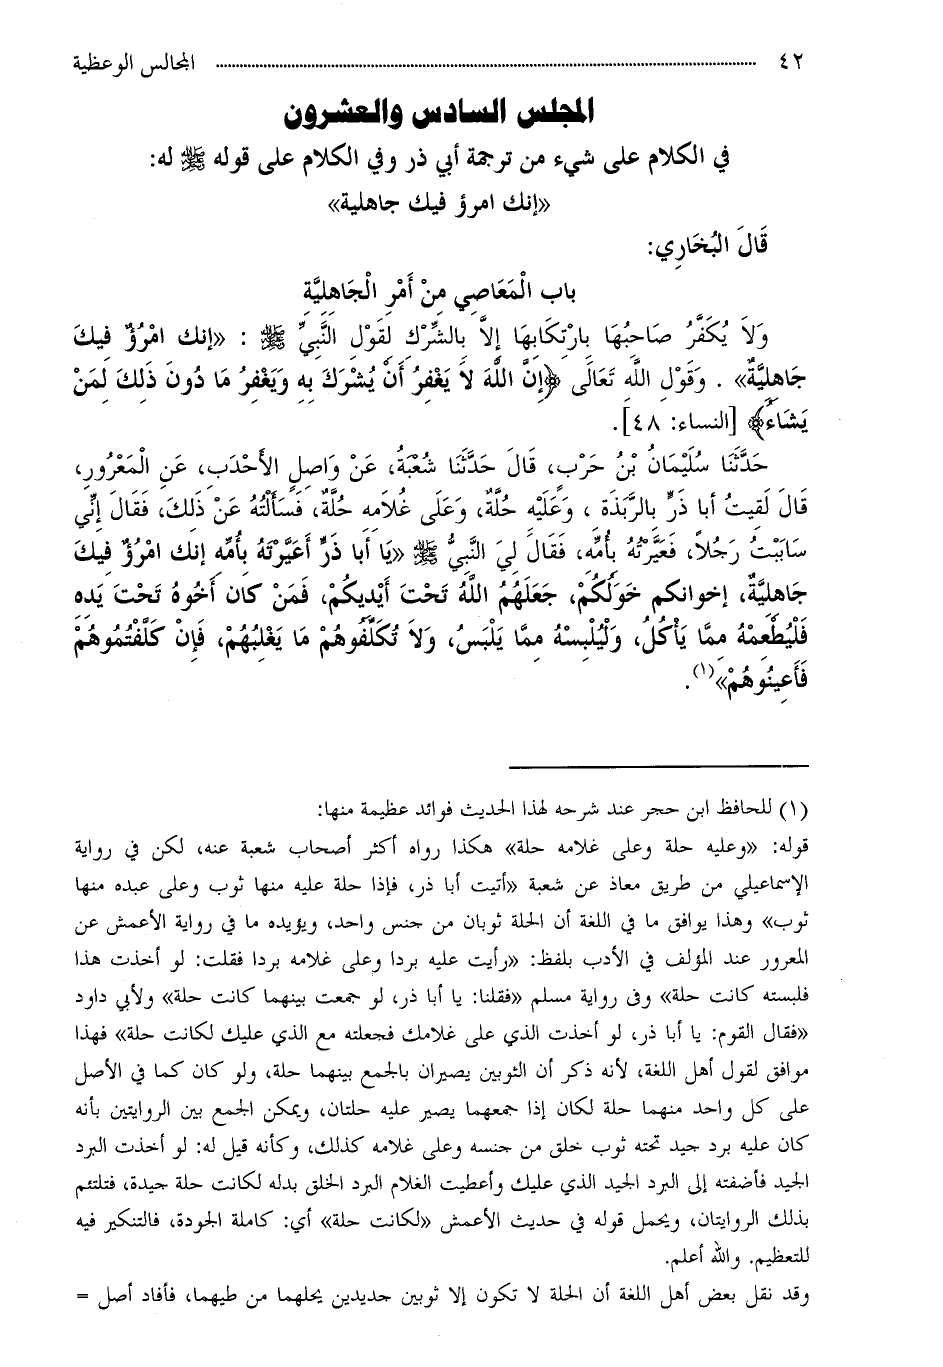 ٤٢ ........................................................ المجالس الوعظية
المجلس السادس والعشرون
في الكلام على شيء من ترجمة أبي ذر وفي الكلام على قوله ﷺ له:
«إنك امرؤ فيك جاهلية»
قَالَ البُخَارِي:
باب الْمَعَاصِي مِنْ أَمْرِ الْجَاهِلِيَّةِ
وَلاَ يُكَفَّرُ صَاحِبُهَا بِارْتِكَابِهَا إِلاَّ بِالشِّرْكِ لِقَوْلِ النَّبِيِّ ﷺ : «إنك امْرُؤٌ فِيكَ
جَاهِلِيَّةٌ» . وَقَوْلِ اللَّهِ تَعَالَى ﴿إِنَّ اللَّهَ لاَ يَغْفِرُ أَنْ يُشْرَكَ بِهِ وَيَغْفِرُ مَا دُونَ ذَلِكَ لِمَنْ
يَشَاءُ﴾ [النساء: ٤٨].
حَدَّثَنَا سُلَيْمَانُ بْنُ حَرْبٍ، قَالَ حَدَّثَنَا شُعْبَةُ، عَنْ وَاصِلٍ الأَحْدَبِ، عَنِ الْمَعْرُورِ،
قَالَ لَقِيتُ أبا ذَرٍّ بِالرَّبَذَةِ ، وَعَلَيْهِ حُلَّةٌ، وَعَلَى غُلاَمِهِ حُلَّةٌ، فَسَأَلْتُهُ عَنْ ذَلِكَ، فَقَالَ إِنِّي
سَابَبْتُ رَجُلاً، فَعَيَّرْتُهُ بِأُمِّهِ، فَقَالَ لِيَ النَّبِيُّ ﷺ «يَا أبا ذَرٍّ أَعَيَّرْتَهُ بِأُمِّهِ إنك امْرُؤٌ فِيكَ
جَاهِلِيَّةٌ، إخوانكم خَوَلُكُمْ، جَعَلَهُمُ اللَّهُ تَحْتَ أَيْدِيكُمْ، فَمَنْ كان أَخُوهُ تَحْتَ يَدِهِ
فَلْيُطْعِمْهُ مِمَّا يَأْكُلُ، وَلْيُلْبِسْهُ مِمَّا يَلْبَسُ، وَلاَ تُكَلِّفُوهُمْ مَا يَغْلِبُهُمْ، فَإِنْ كَلَّفْتُمُوهُمْ
فَأَعِينُوهُمْ»(١).
(١) للحافظ ابن حجر عند شرحه لهذا الحديث فوائد عظيمة منها:
قوله: «وعليه حلة وعلى غلامه حلة» هكذا رواه أكثر أصحاب شعبة عنه، لكن في رواية
الإسماعيلي من طريق معاذ عن شعبة «أتيت أبا ذر، فإذا حلة عليه منها ثوب وعلى عبده منها
ثوب» وهذا يوافق ما في اللغة أن الحلة ثوبان من جنس واحد، ويؤيده ما في رواية الأعمش عن
المعرور عند المؤلف في الأدب بلفظ: «رأيت عليه بردا وعلى غلامه بردا فقلت: لو أخذت هذا
فلبسته كانت حلة» وفى رواية مسلم «فقلنا: يا أبا ذر، لو جمعت بينهما كانت حلة» ولأبي داود
«فقال القوم: يا أبا ذر، لو أخذت الذي على غلامك فجعلته مع الذي عليك لكانت حلة» فهذا
موافق لقول أهل اللغة، لأنه ذكر أن الثوبين يصيران بالجمع بينهما حلة، ولو كان كما في الأصل
على كل واحد منهما حلة لكان إذا جمعهما يصير عليه حلتان، ويمكن الجمع بين الروايتين بأنه
كان عليه برد جيد تحته ثوب خلق من جنسه وعلى غلامه كذلك، وكأنه قيل له: لو أخذت البرد
الجيد فأضفته إلى البرد الجيد الذي عليك وأعطيت الغلام البرد الخلق بدله لكانت حلة جيدة، فتلتئم
بذلك الروايتان، ويحمل قوله في حديث الأعمش «لكانت حلة» أي: كاملة الجودة، فالتنكير فيه
للتعظيم. والله أعلم.
وقد نقل بعض أهل اللغة أن الحلة لا تكون إلا ثوبين جديدين يحلهما من طيهما، فأفاد أصل =